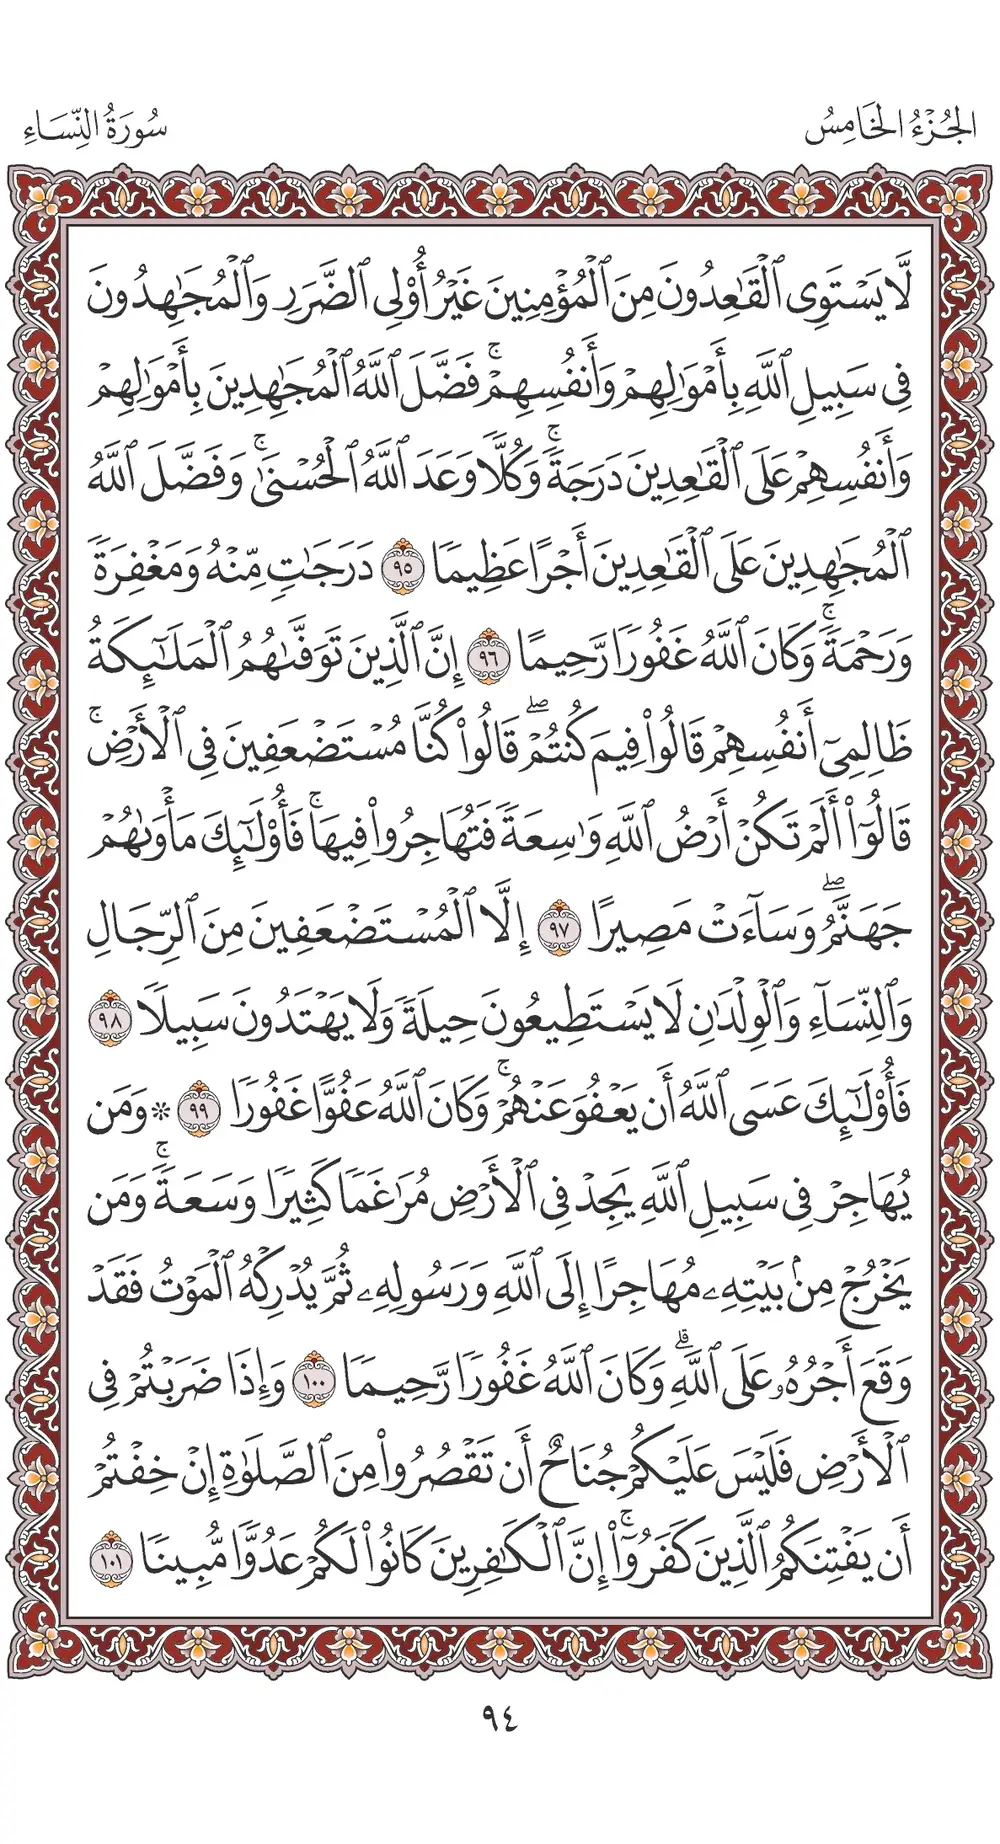 الجُزْءُ الخَامِسُ
سُورَةُ النِّسَاءِ
لَّا يَسْتَوِى ٱلْقَٰعِدُونَ مِنَ ٱلْمُؤْمِنِينَ غَيْرُ أُو۟لِى ٱلضَّرَرِ وَٱلْمُجَٰهِدُونَ
فِى سَبِيلِ ٱللَّهِ بِأَمْوَٰلِهِمْ وَأَنفُسِهِمْ ۚ فَضَّلَ ٱللَّهُ ٱلْمُجَٰهِدِينَ بِأَمْوَٰلِهِمْ
وَأَنفُسِهِمْ عَلَى ٱلْقَٰعِدِينَ دَرَجَةً ۚ وَكُلًّا وَعَدَ ٱللَّهُ ٱلْحُسْنَىٰ ۚ وَفَضَّلَ ٱللَّهُ
ٱلْمُجَٰهِدِينَ عَلَى ٱلْقَٰعِدِينَ أَجْرًا عَظِيمًا ٩٥ دَرَجَٰتٍ مِّنْهُ وَمَغْفِرَةً
وَرَحْمَةً ۚ وَكَانَ ٱللَّهُ غَفُورًا رَّحِيمًا ٩٦ إِنَّ ٱلَّذِينَ تَوَفَّىٰهُمُ ٱلْمَلَٰٓئِكَةُ
ظَالِمِىٓ أَنفُسِهِمْ قَالُوا۟ فِيمَ كُنتُمْ ۖ قَالُوا۟ كُنَّا مُسْتَضْعَفِينَ فِى ٱلْأَرْضِ ۚ
قَالُوٓا۟ أَلَمْ تَكُنْ أَرْضُ ٱللَّهِ وَٰسِعَةً فَتُهَاجِرُوا۟ فِيهَا ۚ فَأُو۟لَٰٓئِكَ مَأْوَىٰهُمْ
جَهَنَّمُ ۖ وَسَآءَتْ مَصِيرًا ٩٧ إِلَّا ٱلْمُسْتَضْعَفِينَ مِنَ ٱلرِّجَالِ
وَٱلنِّسَآءِ وَٱلْوِلْدَٰنِ لَا يَسْتَطِيعُونَ حِيلَةً وَلَا يَهْتَدُونَ سَبِيلًا ٩٨
فَأُو۟لَٰٓئِكَ عَسَى ٱللَّهُ أَن يَعْفُوَ عَنْهُمْ ۚ وَكَانَ ٱللَّهُ عَفُوًّا غَفُورًا ٩٩ * وَمَن
يُهَاجِرْ فِى سَبِيلِ ٱللَّهِ يَجِدْ فِى ٱلْأَرْضِ مُرَٰغَمًا كَثِيرًا وَسَعَةً ۚ وَمَن
يَخْرُجْ مِنۢ بَيْتِهِۦ مُهَاجِرًا إِلَى ٱللَّهِ وَرَسُولِهِۦ ثُمَّ يُدْرِكْهُ ٱلْمَوْتُ فَقَدْ
وَقَعَ أَجْرُهُۥ عَلَى ٱللَّهِ ۗ وَكَانَ ٱللَّهُ غَفُورًا رَّحِيمًا ١٠٠ وَإِذَا ضَرَبْتُمْ فِى
ٱلْأَرْضِ فَلَيْسَ عَلَيْكُمْ جُنَاحٌ أَن تَقْصُرُوا۟ مِنَ ٱلصَّلَوٰةِ إِنْ خِفْتُمْ
أَن يَفْتِنَكُمُ ٱلَّذِينَ كَفَرُوٓا۟ ۚ إِنَّ ٱلْكَٰفِرِينَ كَانُوا۟ لَكُمْ عَدُوًّا مُّبِينًا ١٠١
٩٤